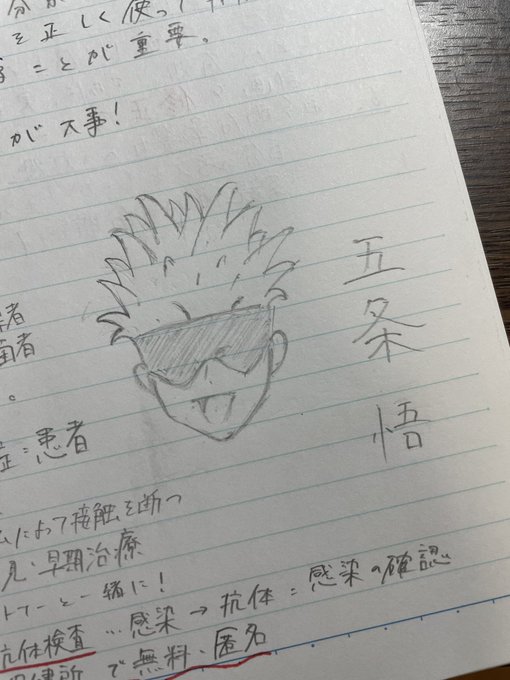 を正しく使っ
ことが重要。
が大事!
五条悟
者
者
患者
によって接触を断つ
見・早期治療
トナーと一緒に!
抗体検査…感染→抗体:感染の確認
保健所で無料・匿名